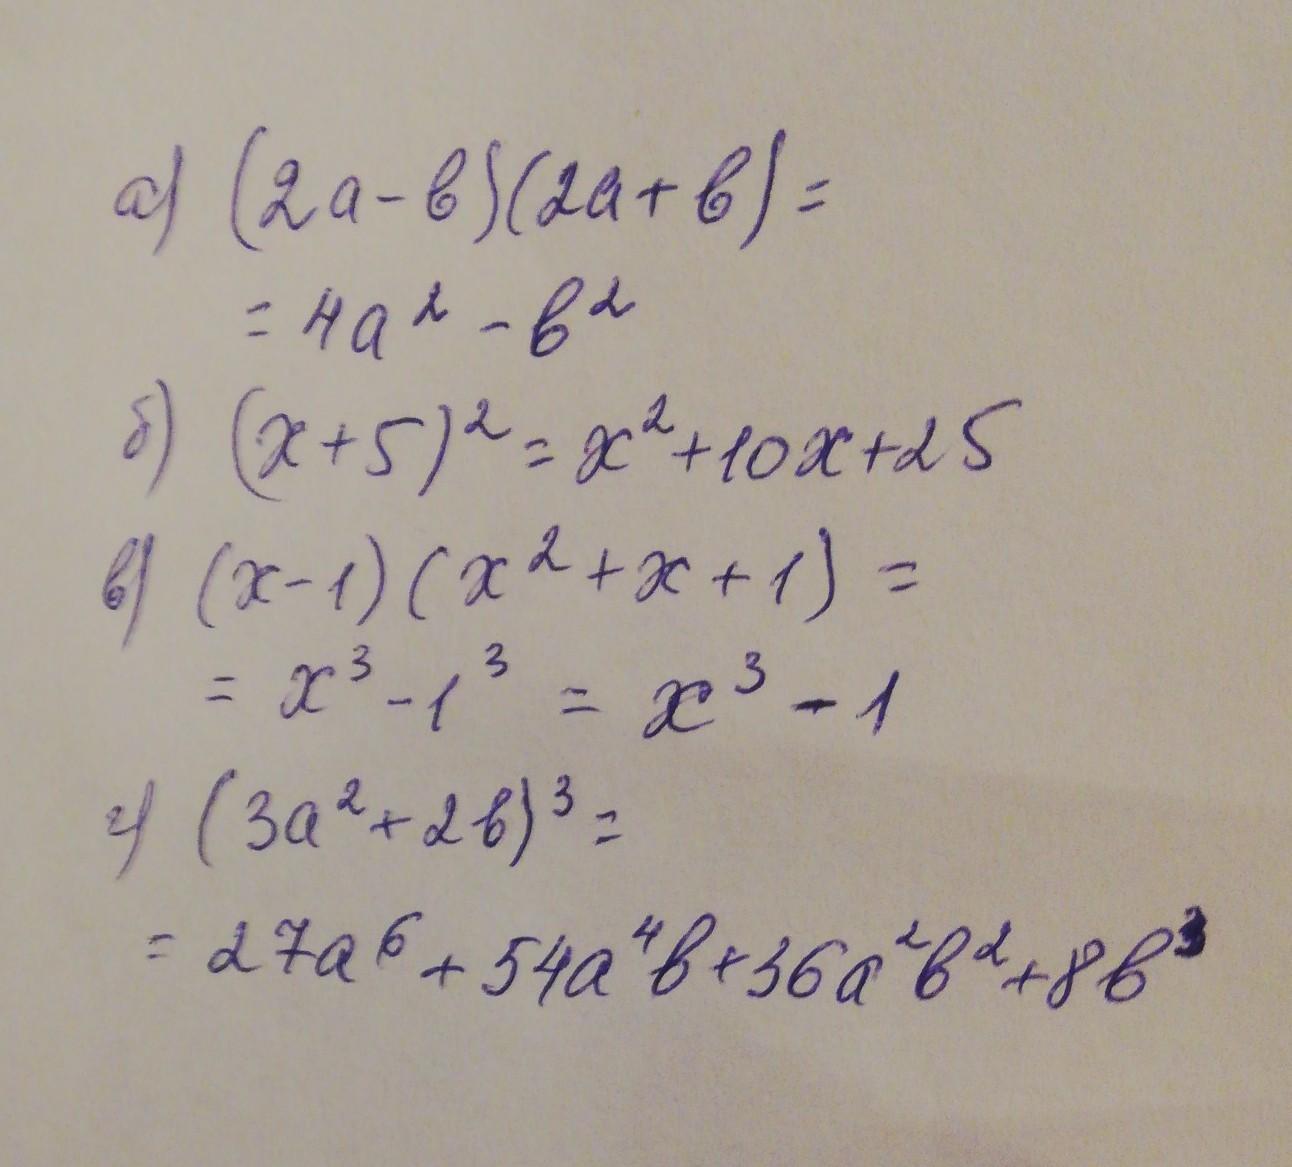 а) (2a - b)(2a + b) =
= 4a² - b²
б) (x + 5)² = x² + 10x + 25
в) (x - 1)(x² + x + 1) =
= x³ - 1³ = x³ - 1
г) (3a² + 2b)³ =
= 27a⁶ + 54a⁴b + 36a²b² + 8b³